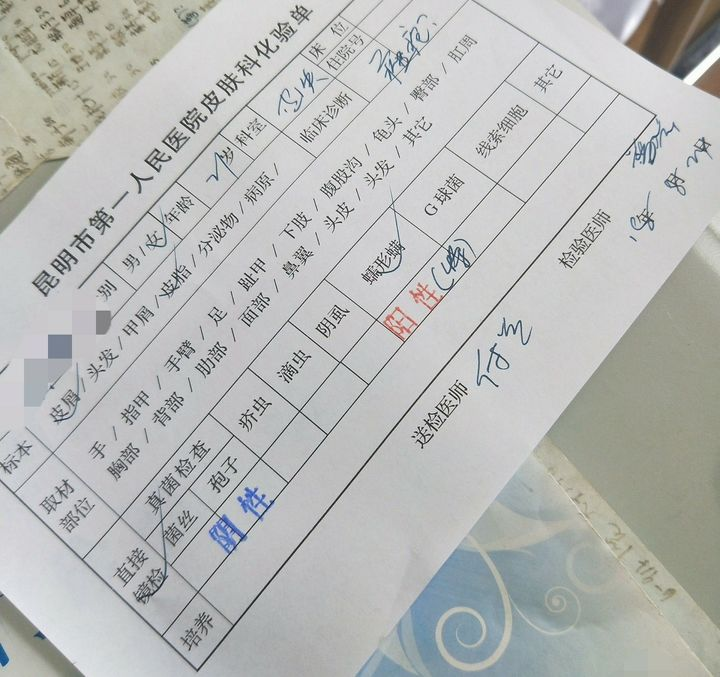 昆明市第一人民医院皮肤科化验单
别 男/女 年龄 21岁 科室 床位
住院号
临床诊断
标本 皮屑/头发/甲屑/皮脂/分泌物/病原/
取材部位 手/指甲/手臂/足/趾甲/下肢/腹股沟/龟头/臀部/肛周
胸部/背部/肋部/面部/鼻翼/头皮/头发/其它
直接镜检 真菌检查 疥虫 滴虫 阴虱 蠕形螨 G球菌 线索细胞 其它
菌丝 孢子
阴性 阳性
培养
送检医师 检验医师